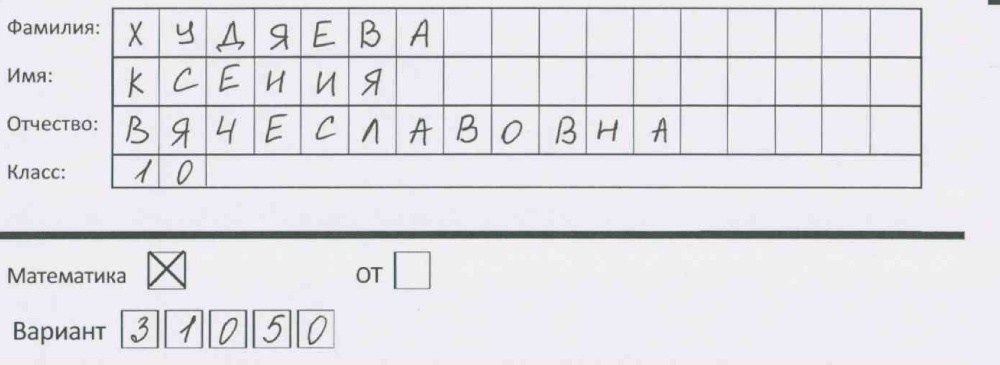 Фамилия: ХУДЯЕВА
Имя: КСЕНИЯ
Отчество: ВЯЧЕСЛАВОВНА
Класс: 10
Математика ☒ от ☐
Вариант 31050